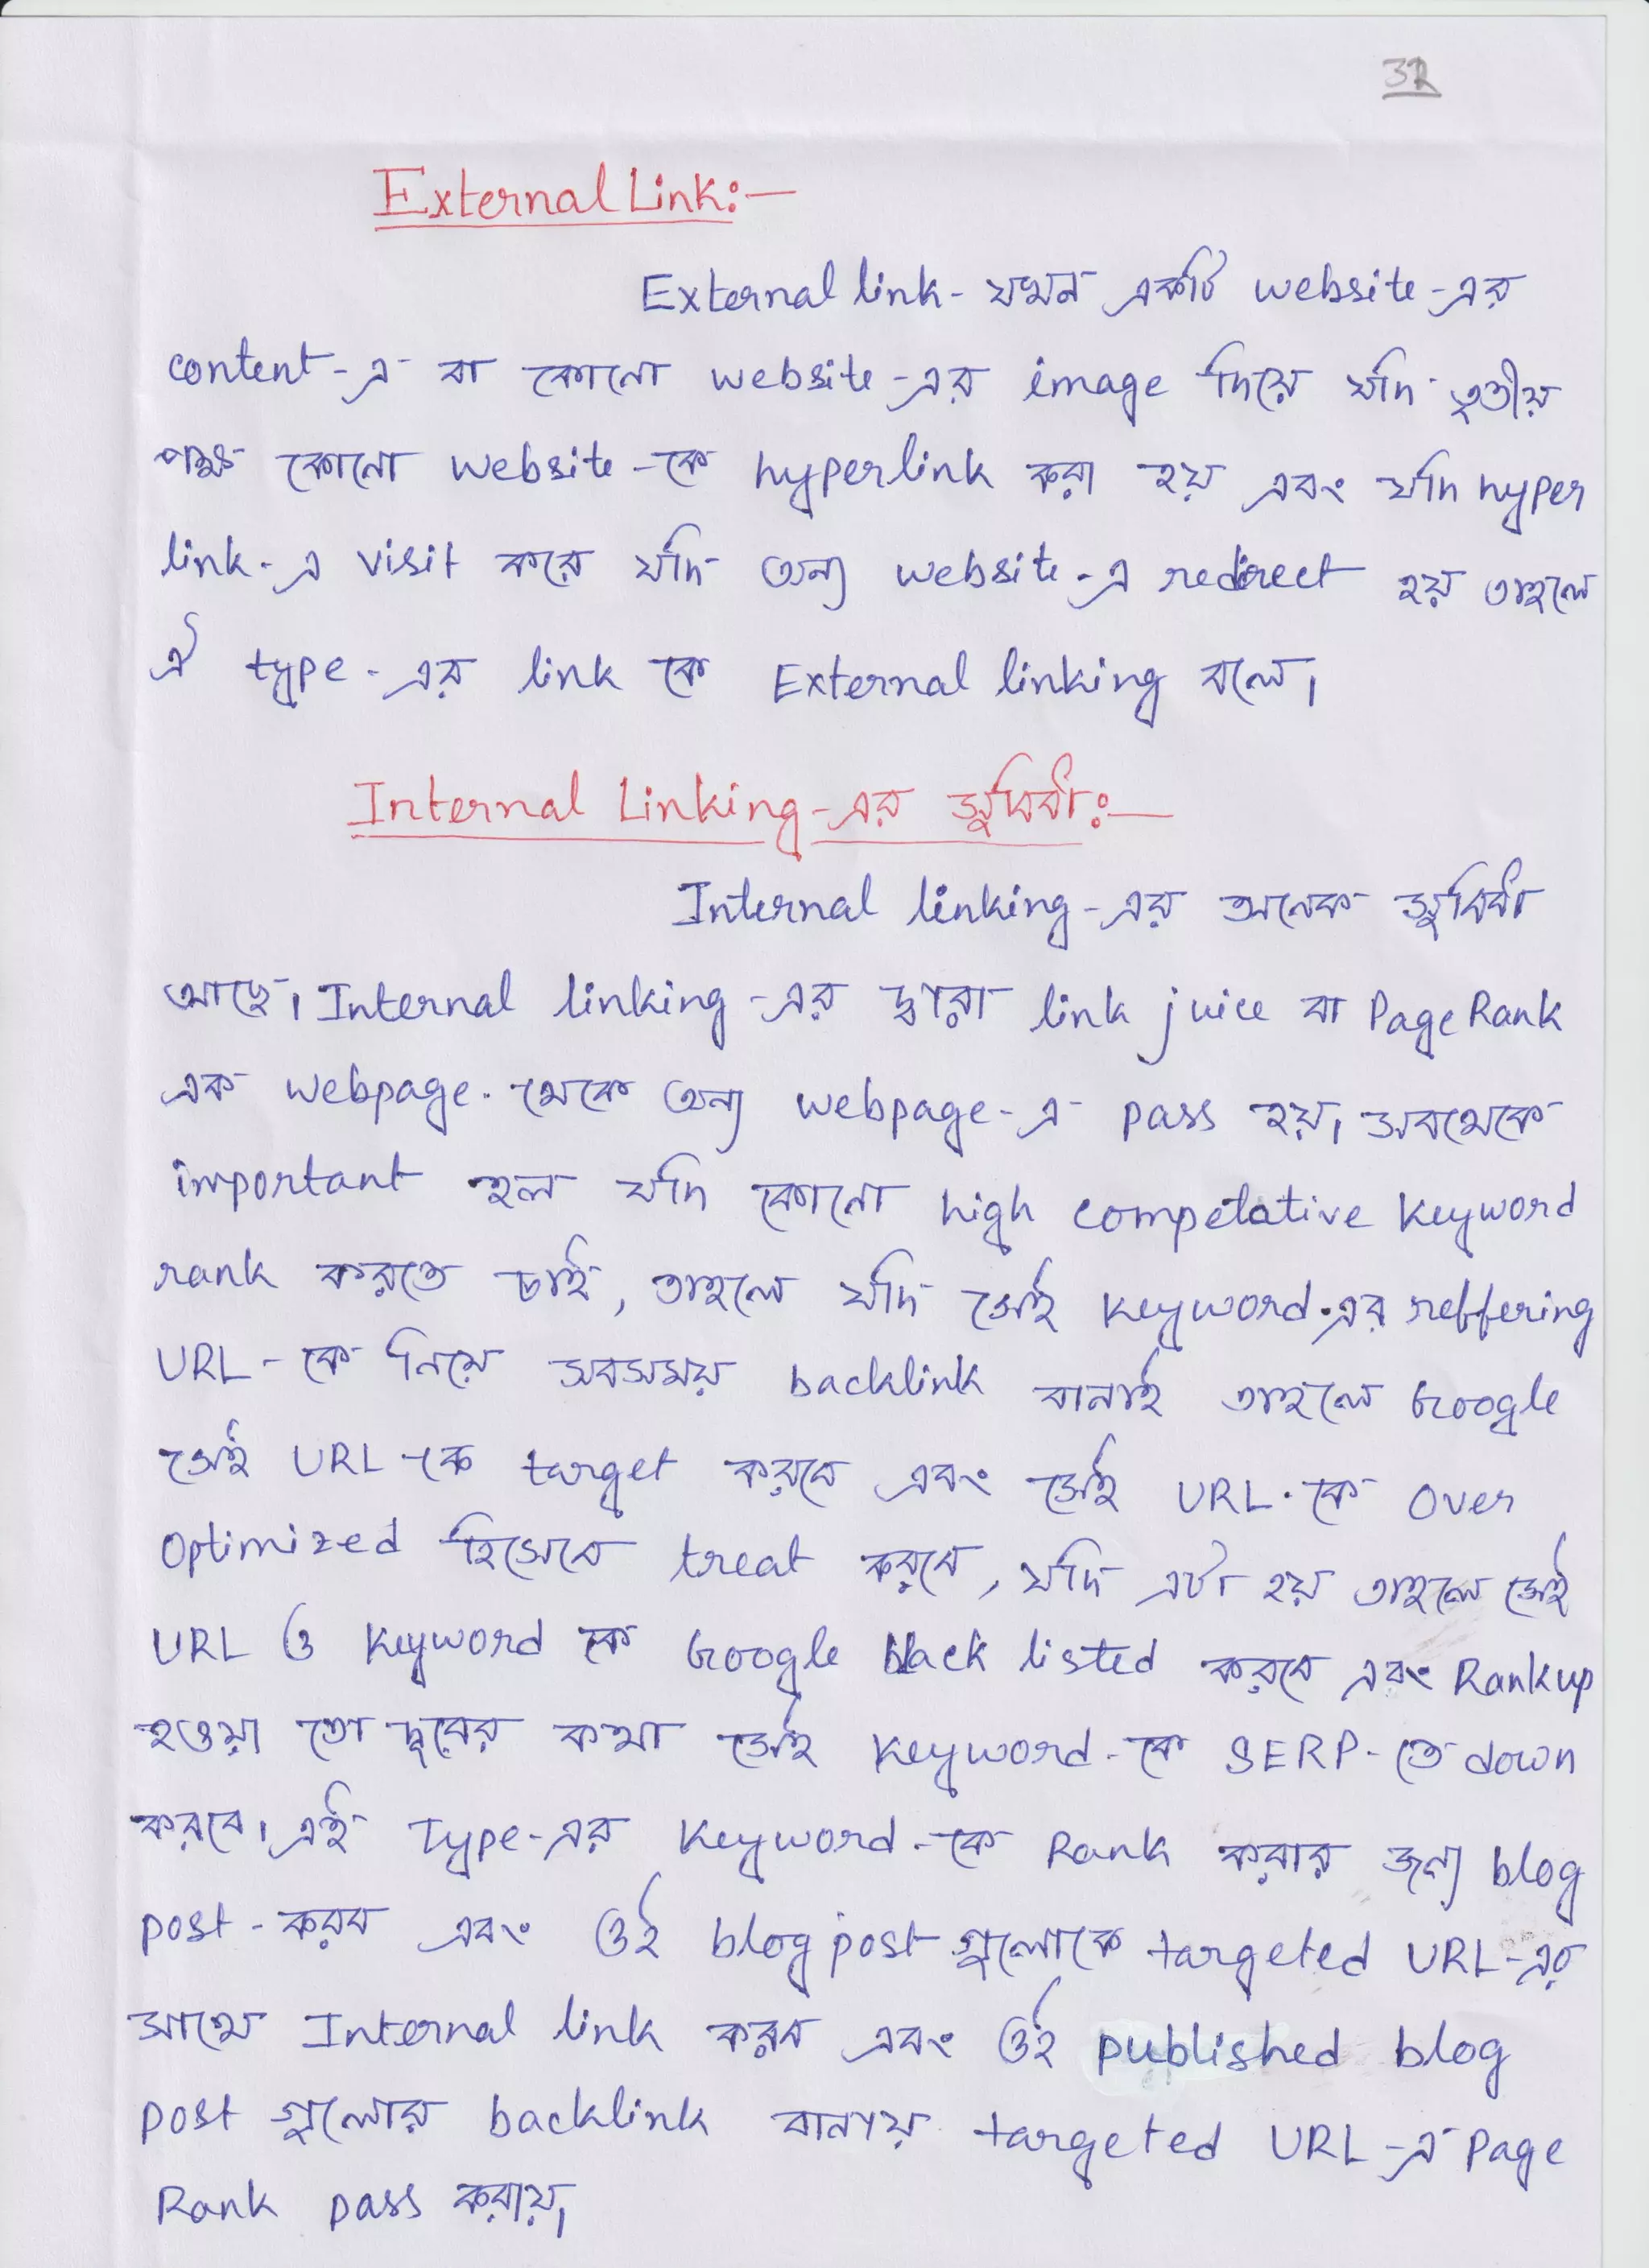 32
External Link:—
External link - যখন একটি website-এর
content-এ বা কোনো website-এর image দিয়ে যদি তৃতীয়
পক্ষ কোনো website-কে hyperlink করা হয় এবং যদি hyper
link-এ visit করে যদি অন্য website-এ redirect হয় তাহলে
ঐ type-এর link কে External linking বলে।
Internal Linking-এর সুবিধা:—
Internal linking-এর অনেক সুবিধা
আছে। Internal linking-এর দ্বারা link juice বা PageRank
এক webpage থেকে অন্য webpage-এ pass হয়। সবথেকে
important হল যদি কোনো high competative keyword
rank করতে চাই, তাহলে যদি সেই keyword-এর reffering
URL-কে নিয়ে সবসময় backlink বানাই তাহলে Google
সেই URL-কে target করবে এবং সেই URL-কে over
optimized হিসেবে treat করবে, যদি এটা হয় তাহলে সেই
URL ও keyword কে Google black listed করবে এবং Rankup
হওয়া তো দূরের কথা সেই keyword-কে SERP-তে down
করবে। এই Type-এর keyword-কে Rank করার জন্য blog
post-করব এবং ওই blog post গুলোকে targeted URL-এর
সাথে Internal link করব এবং ওই published blog
post গুলোর backlink বানায় targeted URL-এ Page
Rank pass করায়।